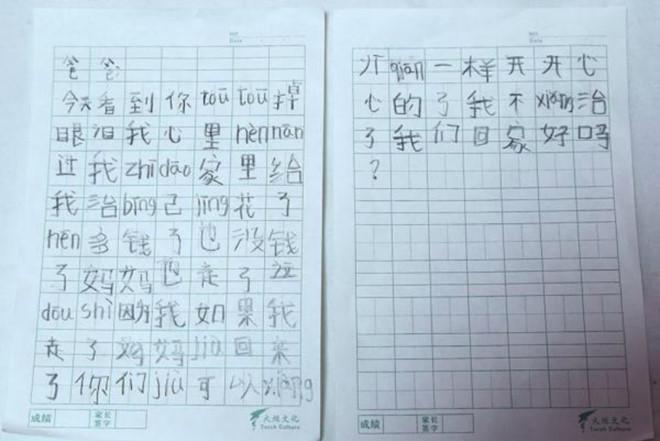 NO.
Date
爸爸
今天看到你toūtoū掉
眼泪我心里hěnnān
过我zhīdāo家里给
我治bìng己jīng花了
hěn多钱了也没钱
了妈妈也走了这
dōu shì因为我如果我
走了妈妈jiù回来
了你们jiù可以xiàng
成绩 家长签字 火炬文化
Torch Culture
NO.
Date
qián一样开开心
心的了我不xiǎng治
了我们回家好吗
?
成绩 家长签字 火炬文化
Torch Culture